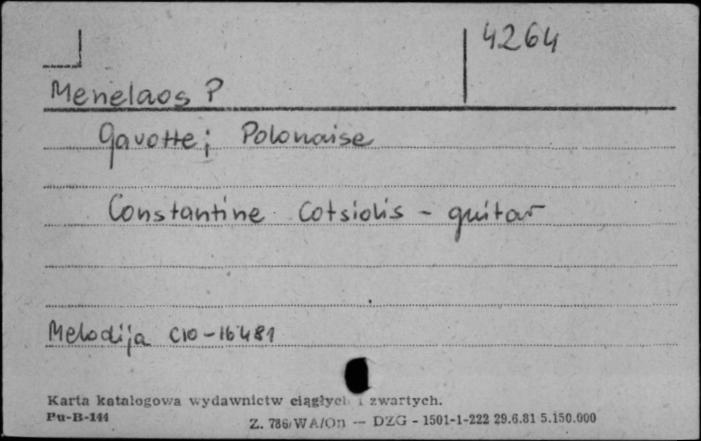 4264
Menelaos P
Gavotte; Polonaise
Constantine Cotsiolis - guitar
Melodija C10-16481
Karta katalogowa wydawnictw ciągłych i zwartych.
Pu-B-144
Z. 786/WA/On — DZG - 1501-1-222 29.6.81 5.150.000